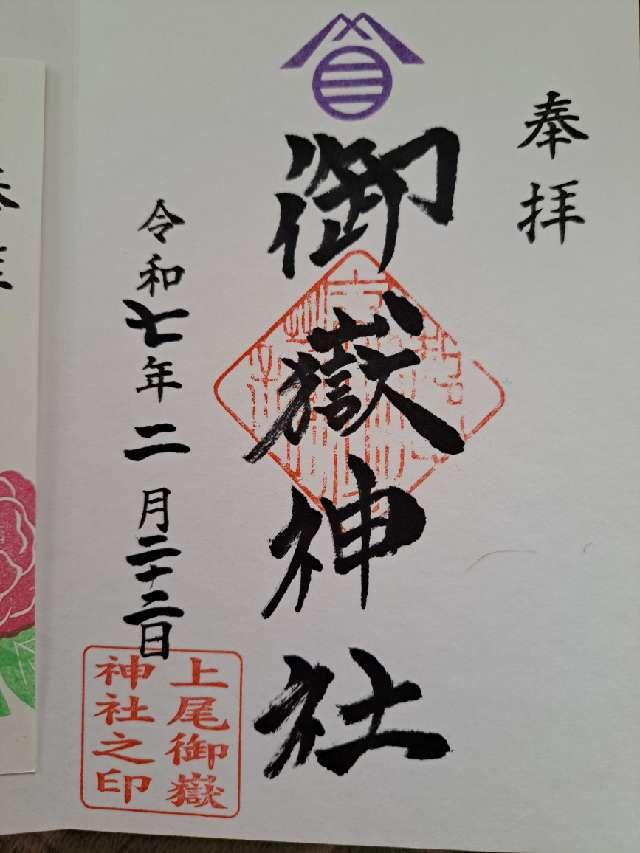 奉拝
御嶽神社
令和七年二月二十二日
上尾御嶽
神社之印